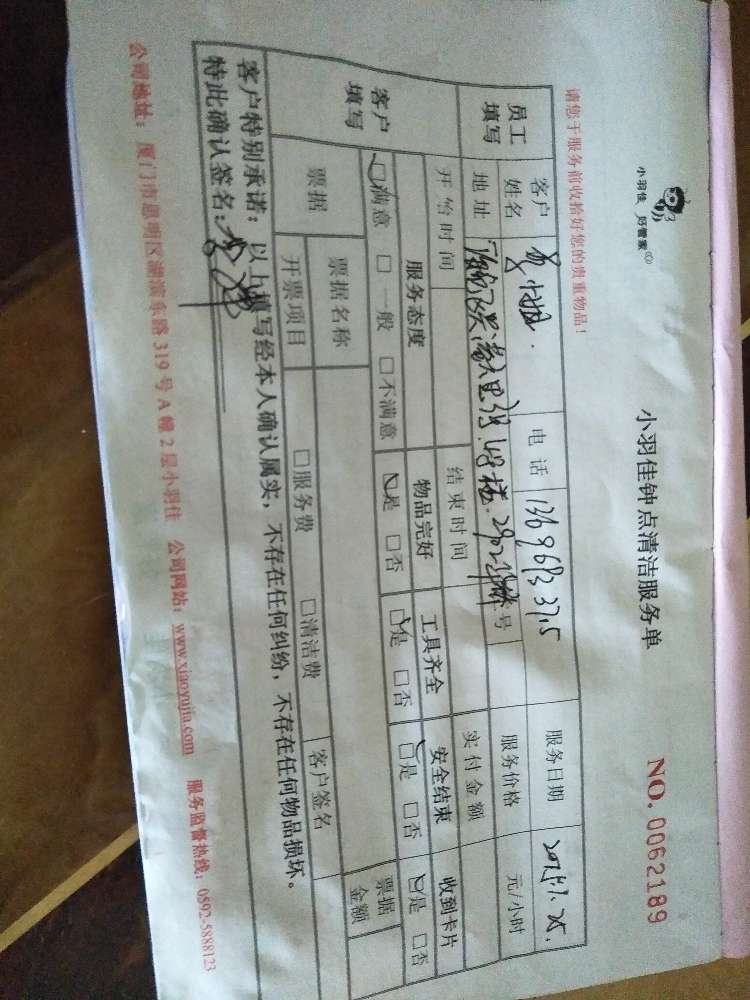 小羽佳 好管家
小羽佳钟点清洁服务单
NO. 0062189
请您于服务前收拾好您的贵重物品！
员工填写
客户姓名
电话
服务日期
地址
卡号
服务价格
元/小时
开始时间
结束时间
实付金额
客户填写
服务态度
物品完好
工具齐全
安全结束
收到卡片
□满意 □一般 □不满意
□是 □否
□是 □否
□是 □否
□是 □否
票据
票据名称
客户签名
票据金额
开票项目
□服务费
□清洁费
客户特别承诺：以上填写经本人确认属实，不存在任何纠纷，不存在任何物品损坏。
特此确认签名：
公司地址：厦门市思明区湖滨东路319号A幢2层小羽佳 公司网站：www.xiaoyujia.com 服务监督热线：0592-5888123